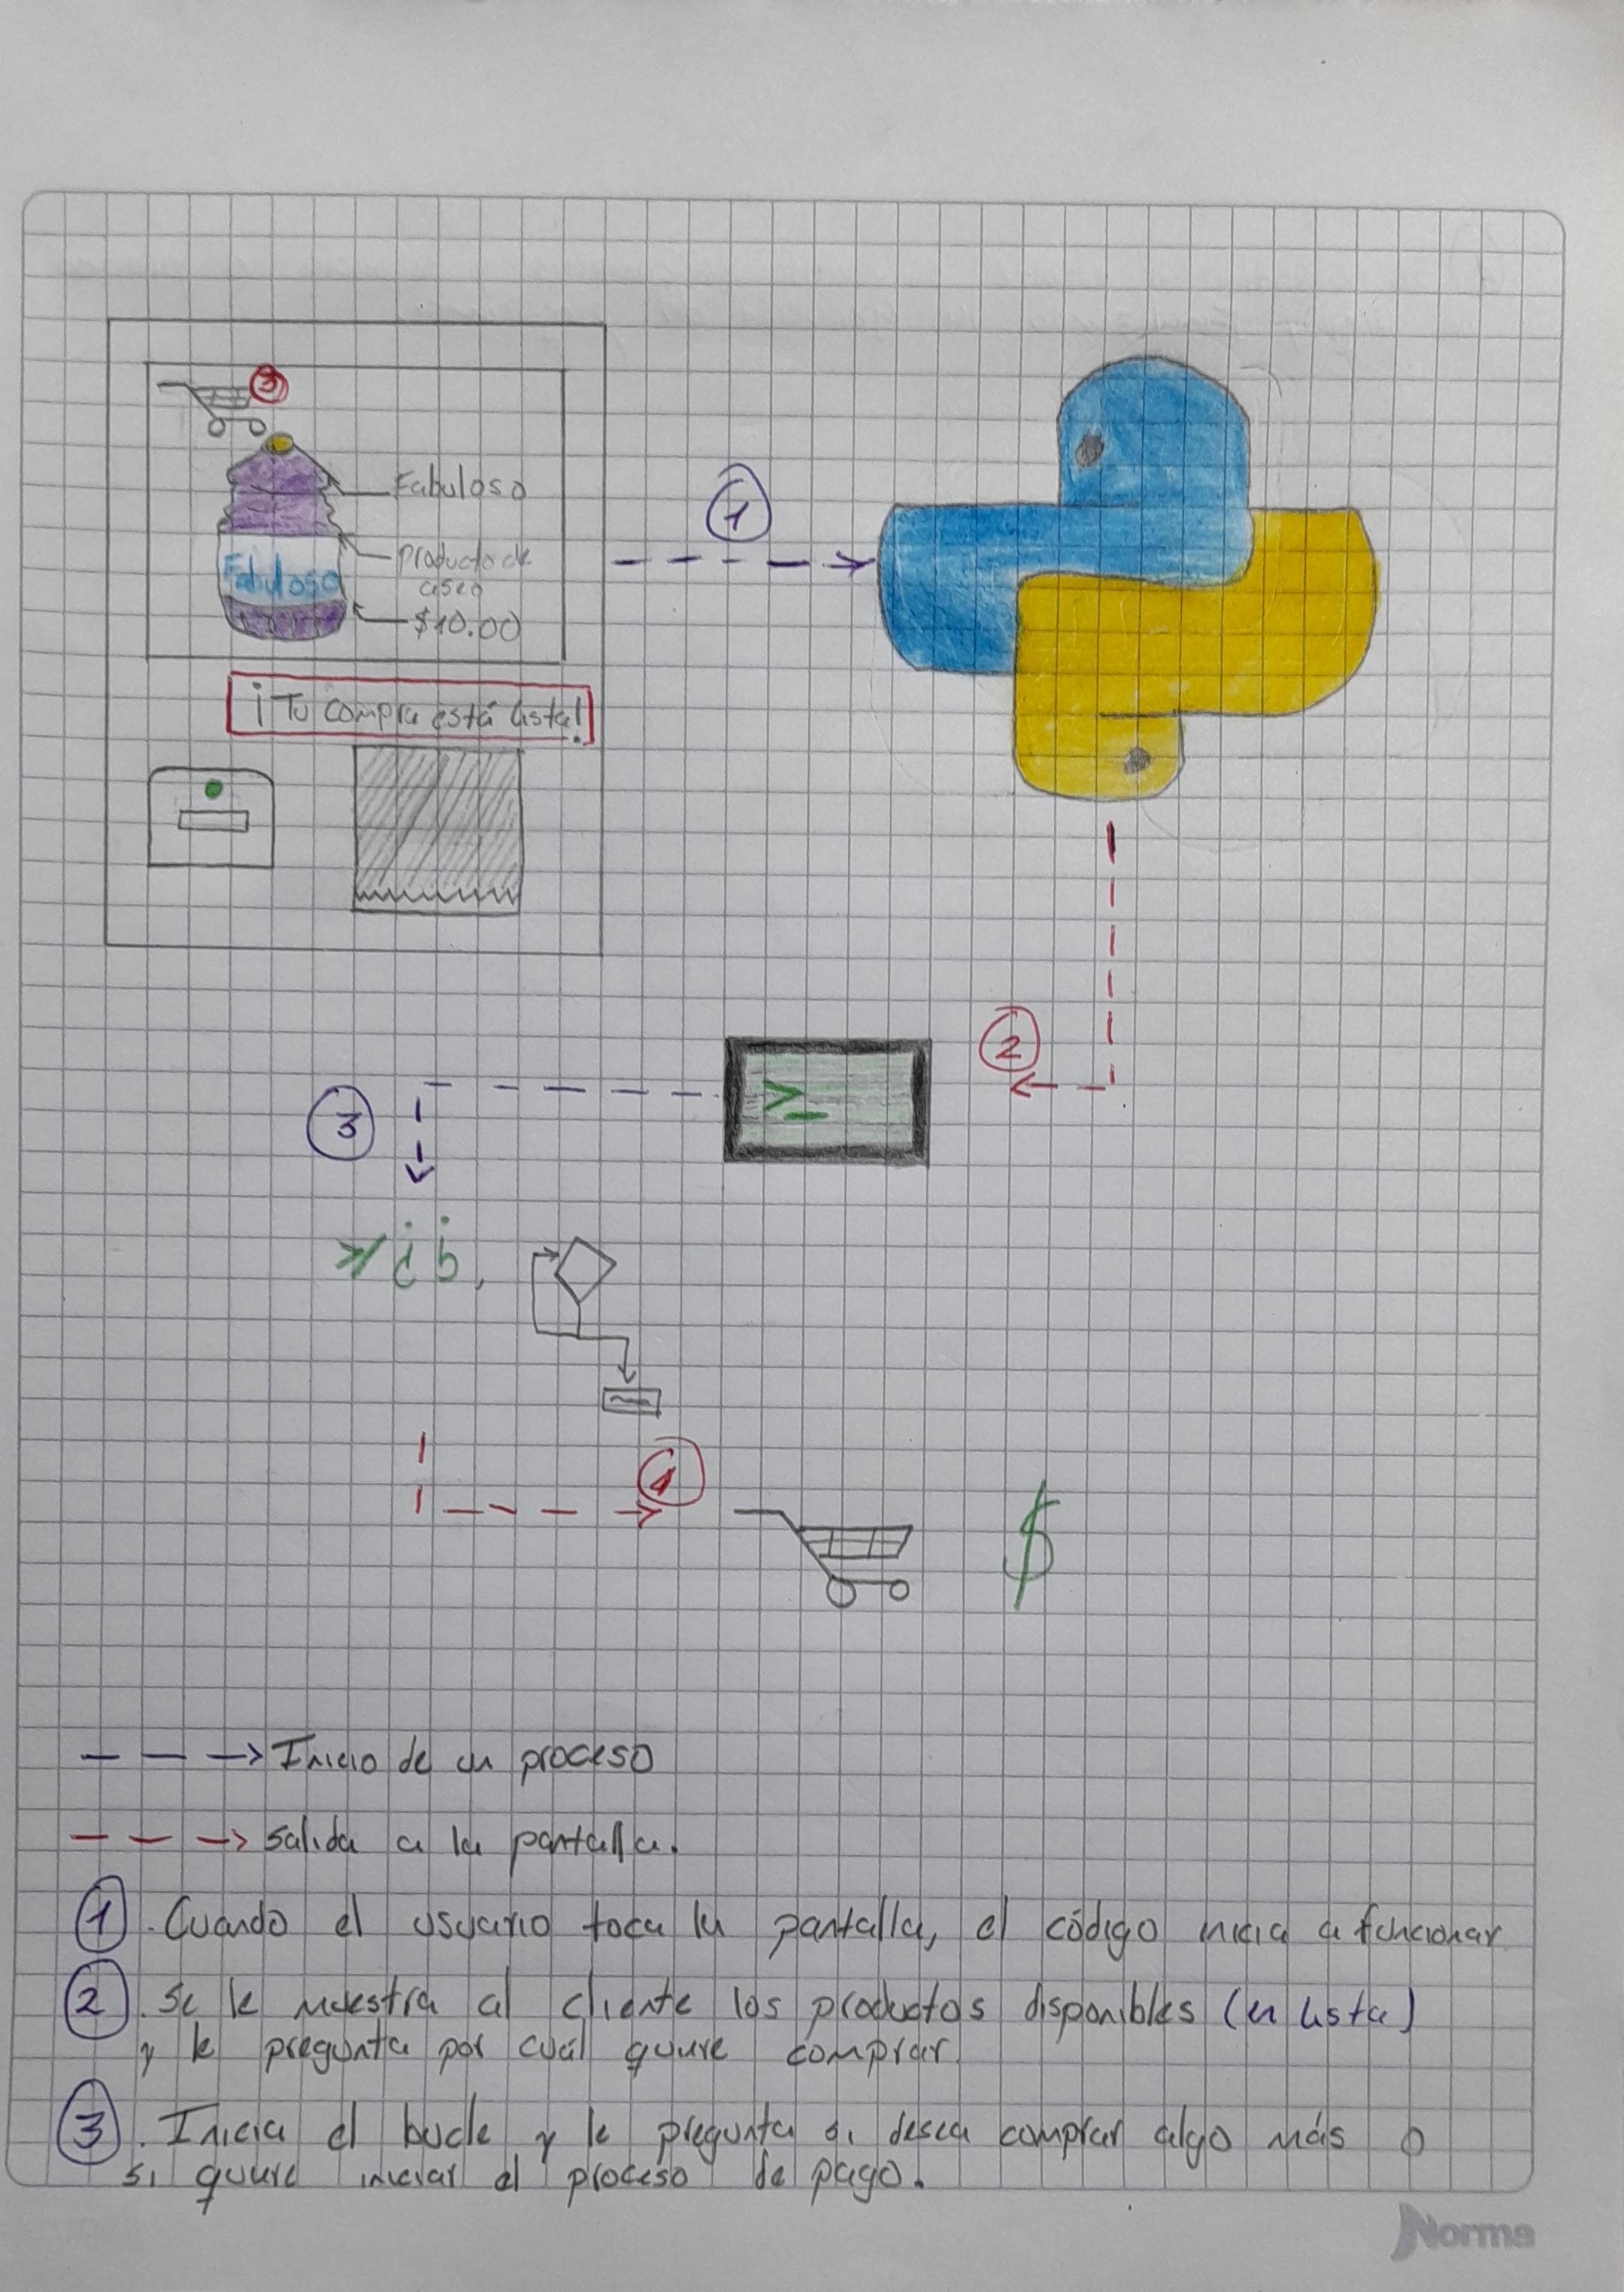 3
Fabuloso
Fabuloso
Producto de
aseo
$10.00
¡Tu compra está lista!
1
2
>_
3
1
$
Inicio de un proceso
Salida a la pantalla.
1. Cuando el usuario toca la pantalla, el código inicia a funcionar
2. Se le muestra al cliente los productos disponibles (en lista)
y le pregunta por cuál quiere comprar.
3. Inicia el bucle y le pregunta si desea comprar algo más o
si quiere iniciar el proceso de pago.
Norma